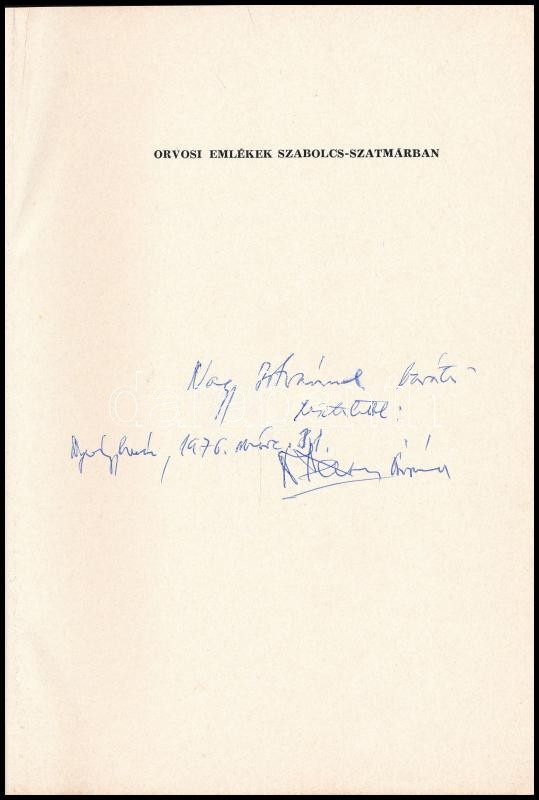 ORVOSI EMLÉKEK SZABOLCS-SZATMÁRBAN
Nagy Istvánnak baráti
tisztelettel:
Nyíregyháza, 1976. márc. 31.
Árpád